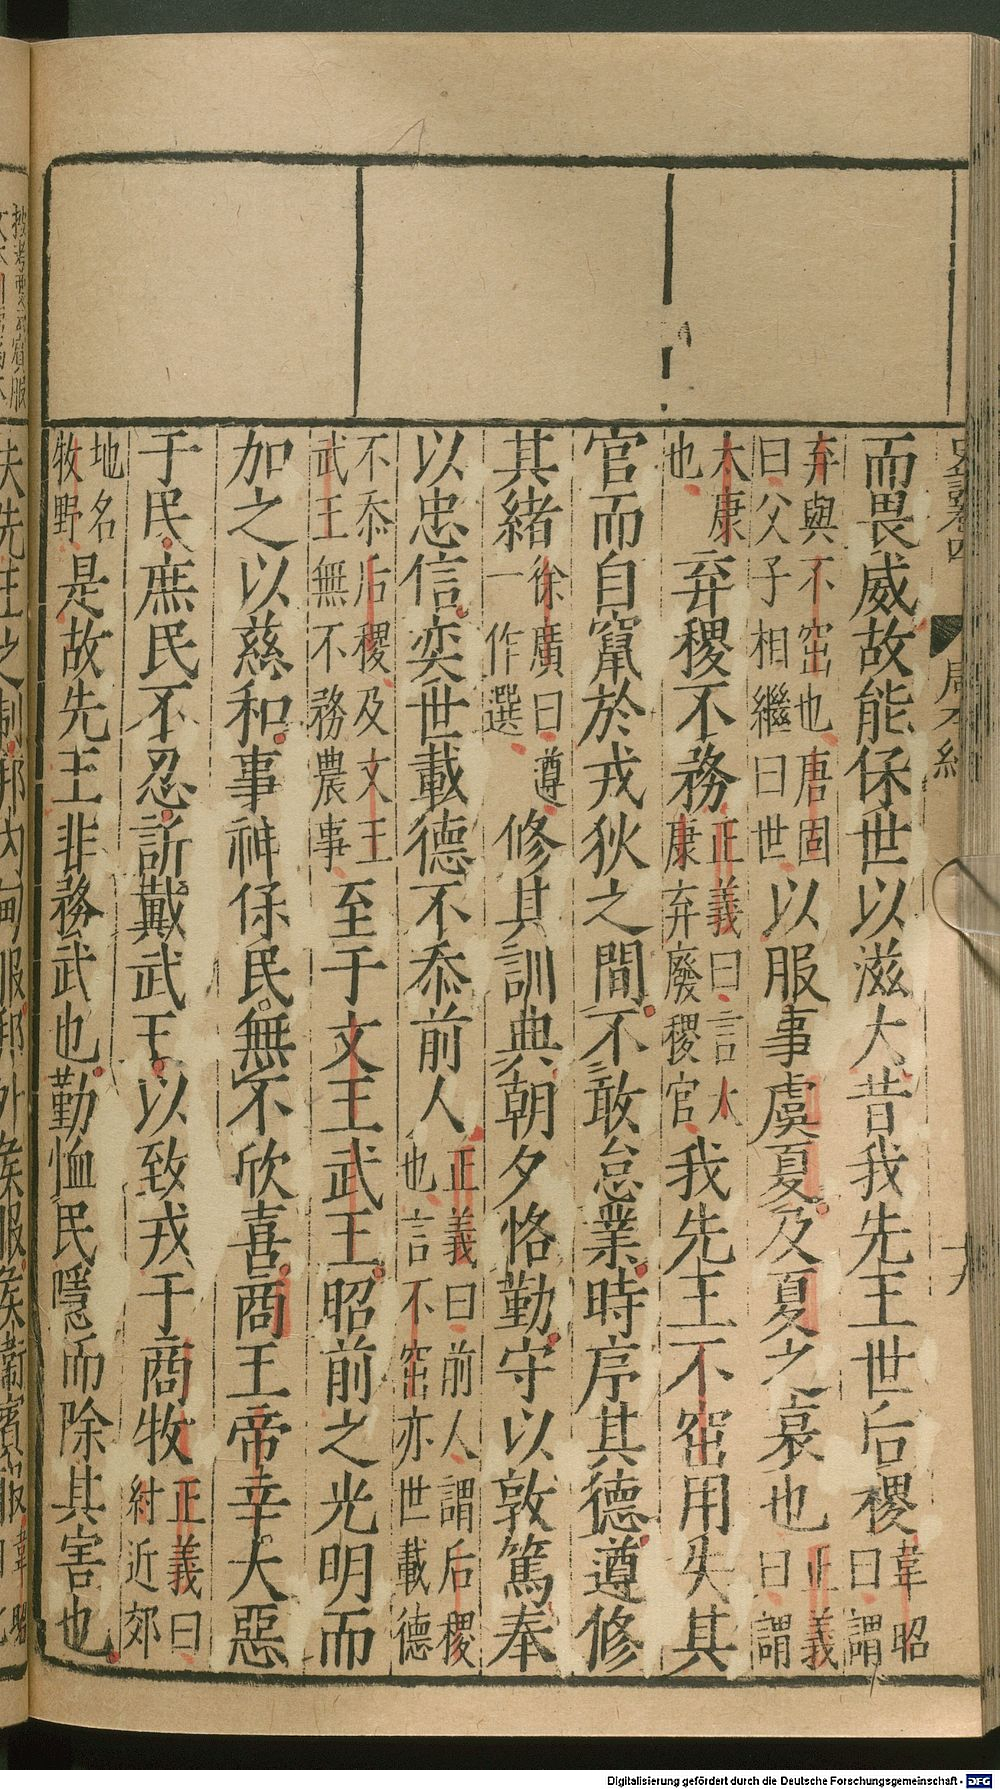 史記卷四 周本紀 十九
而畏威故能保世以滋大昔我先王世后稷韋昭曰謂
弃與不窋也唐固曰父子相繼曰世以服事虞夏及夏之衰也正義曰謂
太康也弃稷不務正義曰言太康弃廢稷官我先王不窋用失其
官而自竄於戎狄之間不敢怠業時序其德遵修
其緒徐廣曰遵一作選修其訓典朝夕恪勤守以敦篤奉
以忠信奕世載德不忝前人正義曰前人謂后稷也言不窋亦世載德
不忝后稷及文王武王無不務農事至于文王武王昭前之光明而
加之以慈和事神保民無不欣喜商王帝辛大惡
于民庶民不忍訢戴武王以致戎于商牧正義曰紂近郊
地名牧野是故先王非務武也勤恤民隱而除其害也
夫先王之制邦內甸服邦外侯服侯衞賓服韋昭
Digitalisierung gefördert durch die Deutsche Forschungsgemeinschaft - DFG